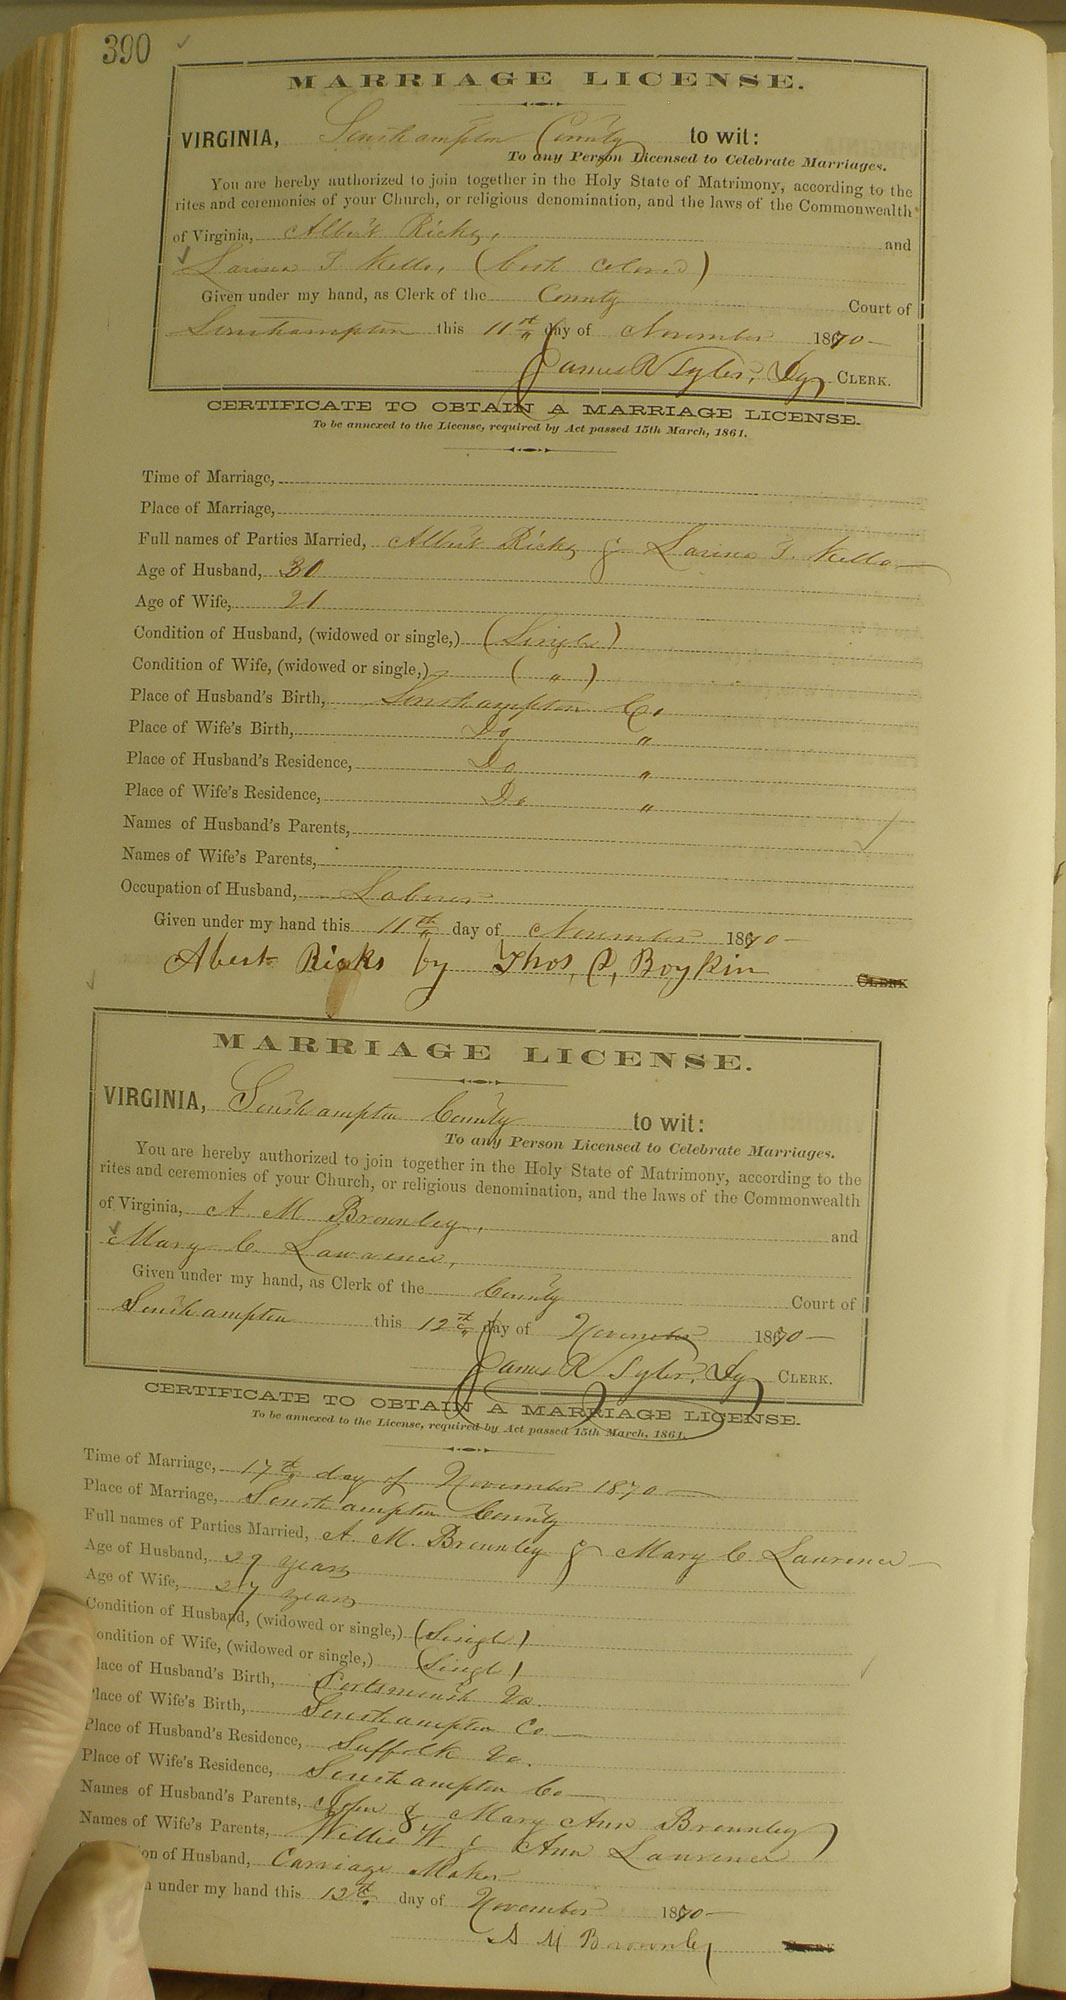 390
MARRIAGE LICENSE.
VIRGINIA, Southampton County to wit:
To any Person Licensed to Celebrate Marriages.
You are hereby authorized to join together in the Holy State of Matrimony, according to the
rites and ceremonies of your Church, or religious denomination, and the laws of the Commonwealth
of Virginia, Albert Ricks, and
T. Kello, (both colored)
Given under my hand, as Clerk of the County Court of
Southampton this 11th day of November 1870
James R Tyler, Dy CLERK.
CERTIFICATE TO OBTAIN A MARRIAGE LICENSE.
To be annexed to the License, required by Act passed 15th March, 1861.
Time of Marriage,
Place of Marriage,
Full names of Parties Married, Albert Ricks & T. Kello
Age of Husband, 30
Age of Wife, 21
Condition of Husband, (widowed or single,) (Single)
Condition of Wife, (widowed or single,) ( " )
Place of Husband's Birth, Southampton Co
Place of Wife's Birth, Do "
Place of Husband's Residence, Do "
Place of Wife's Residence, Do "
Names of Husband's Parents,
Names of Wife's Parents,
Occupation of Husband, Laborer
Given under my hand this 11th day of November 1870
Abert Ricks by Thos, P, Boykin CLERK
MARRIAGE LICENSE.
VIRGINIA, Southampton County to wit:
To any Person Licensed to Celebrate Marriages.
You are hereby authorized to join together in the Holy State of Matrimony, according to the
rites and ceremonies of your Church, or religious denomination, and the laws of the Commonwealth
of Virginia, A. M. Brownley, and
Mary C. Lawrence,
Given under my hand, as Clerk of the County Court of
Southampton this 12th day of November 1870
James R Tyler, Dy CLERK.
CERTIFICATE TO OBTAIN A MARRIAGE LICENSE.
To be annexed to the License, required by Act passed 15th March, 1861.
Time of Marriage, 17th day of November 1870
Place of Marriage, Southampton County
Full names of Parties Married, A. M. Brownley & Mary C. Laurence
Age of Husband, 29 years
Age of Wife, 27 years
Condition of Husband, (widowed or single,) (Single)
ondition of Wife, (widowed or single,) (Single)
lace of Husband's Birth, Portsmouth Va.
Place of Wife's Birth, Southampton Co
Place of Husband's Residence, Suffolk Va.
Place of Wife's Residence, Southampton Co
Names of Husband's Parents, John & Mary Ann Brownley
Names of Wife's Parents, Willis W. & Ann Laurence
on of Husband, Carriage Maker
n under my hand this 12th day of November 1870
A M Brownley CLERK